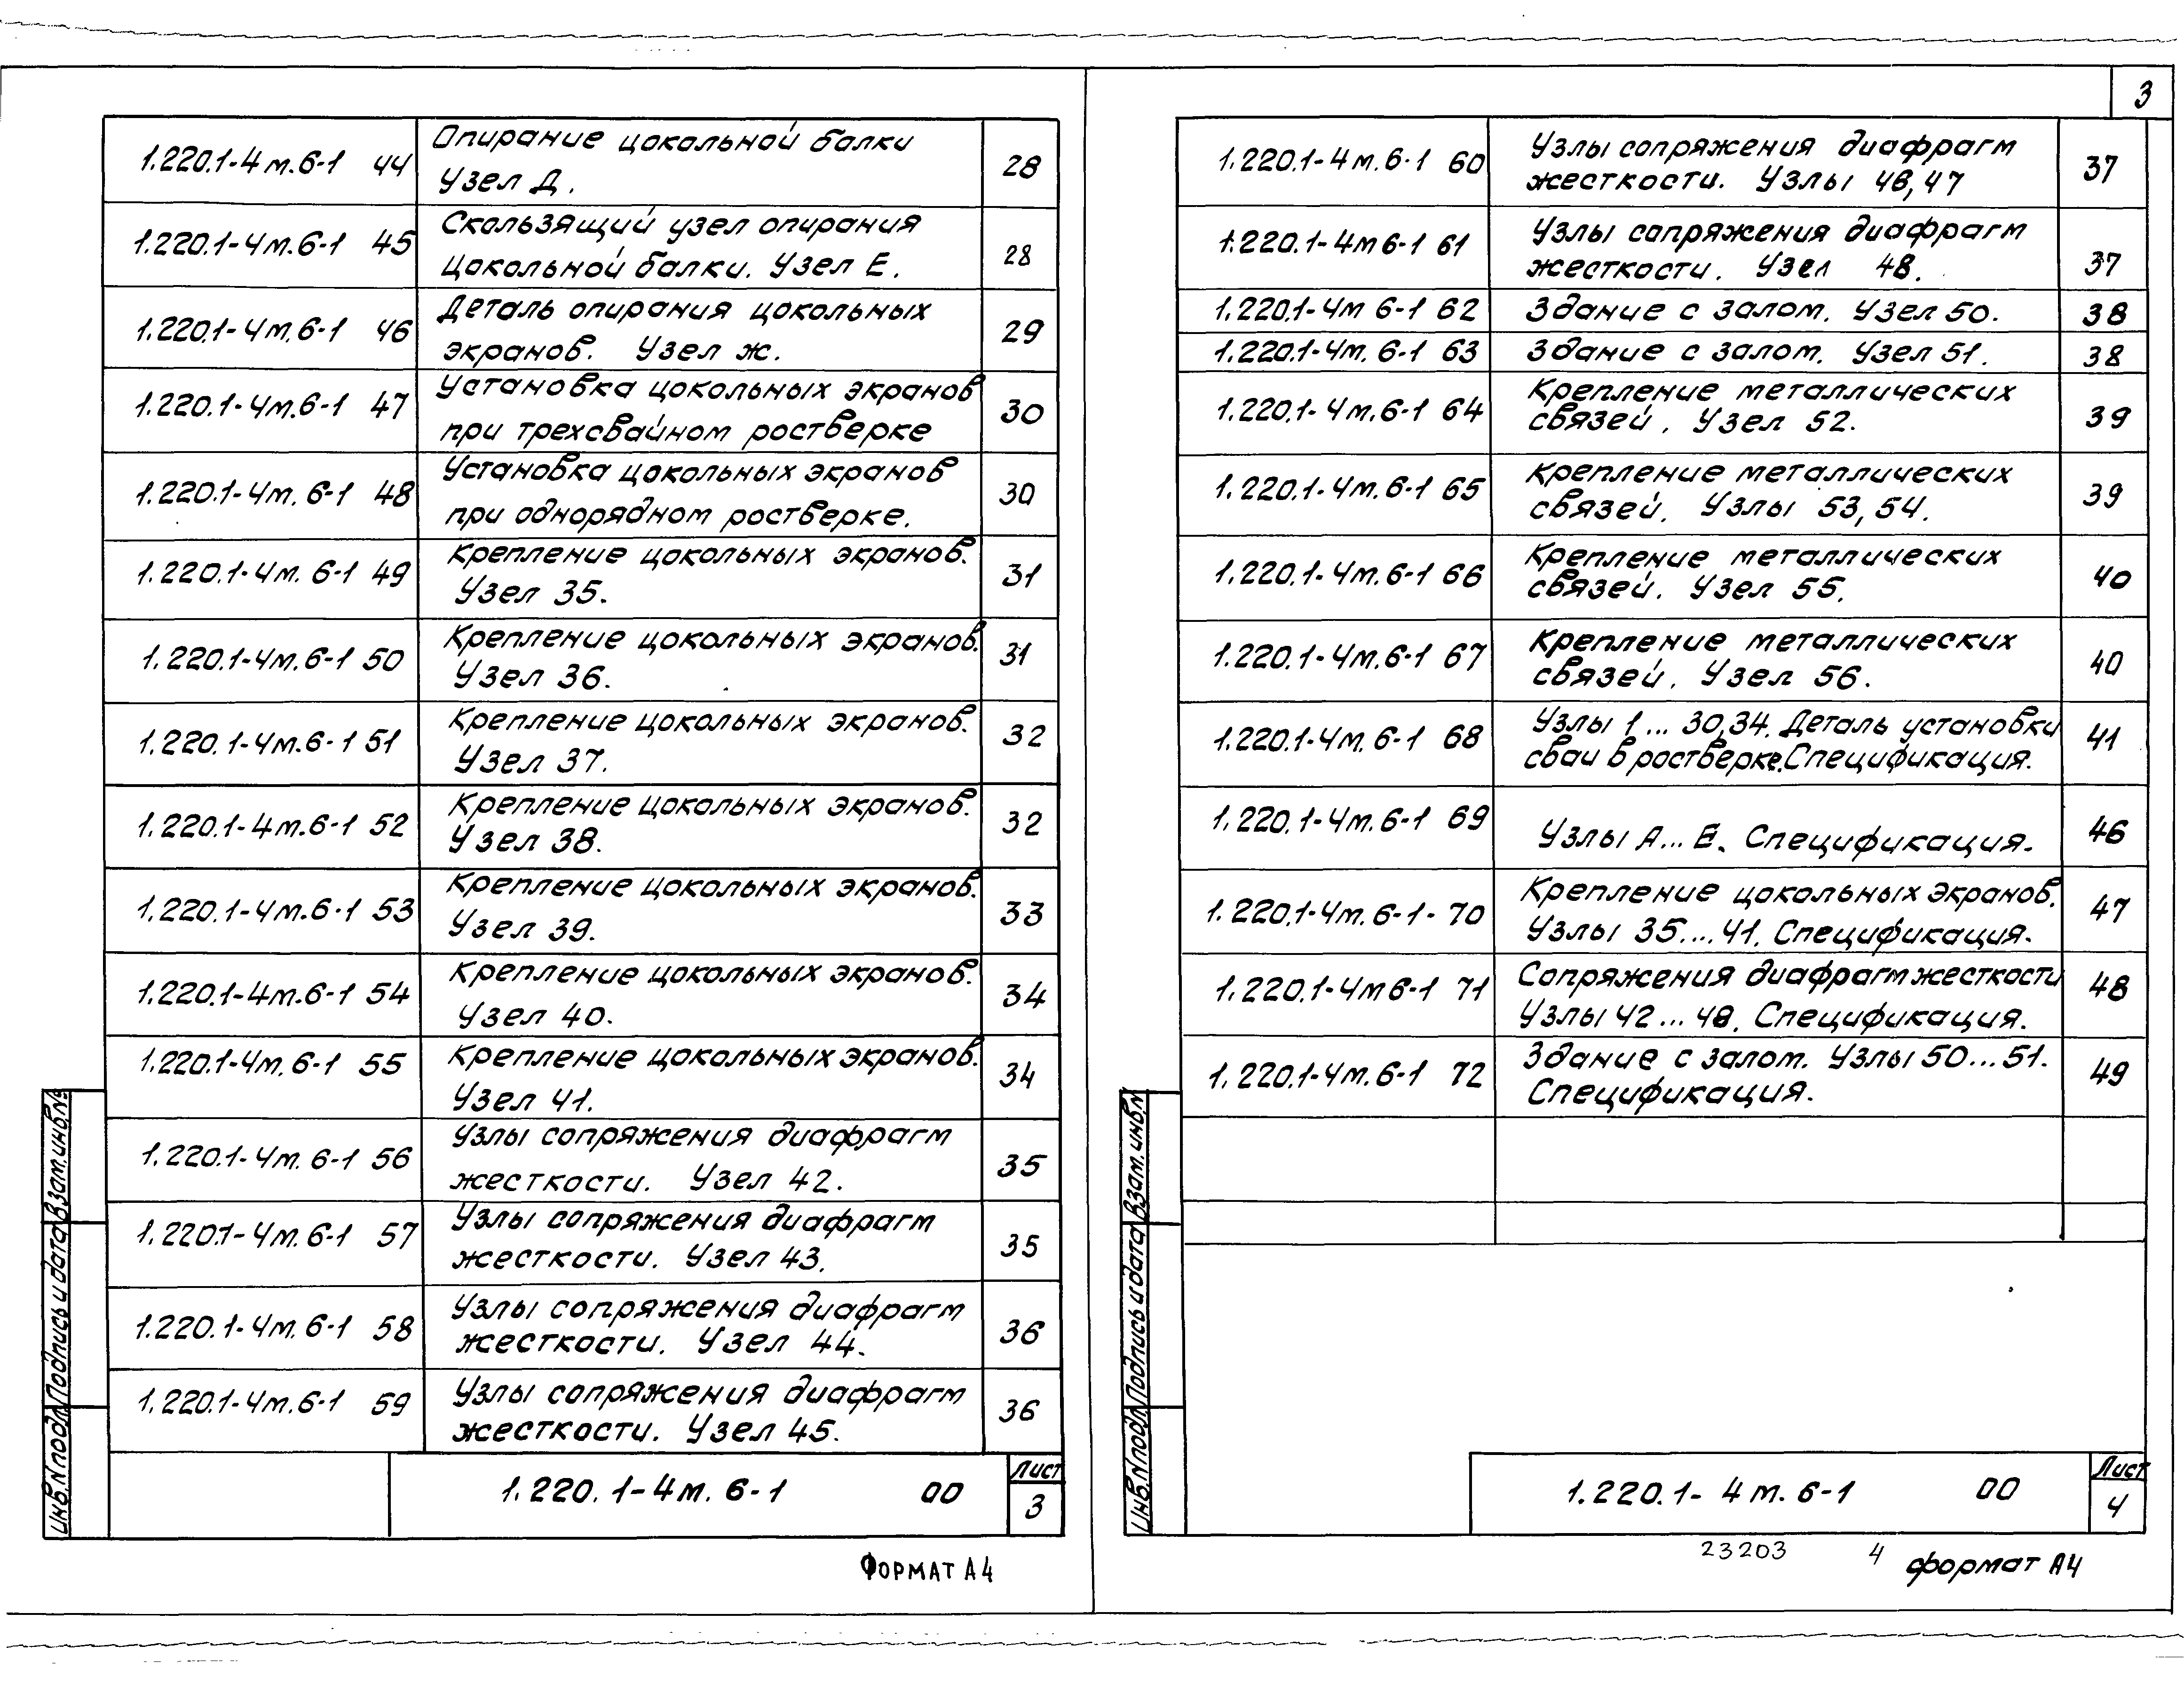 3
1.220.1-4м.6-1 44 Опирание цокольной балки 28
Узел Д.
1.220.1-4м.6-1 45 Скользящий узел опирания 28
цокольной балки. Узел Е.
1.220.1-4м.6-1 46 Деталь опирания цокольных 29
экранов. Узел ж.
1.220.1-4м.6-1 47 Установка цокольных экранов 30
при трехсвайном ростверке
1.220.1-4м.6-1 48 Установка цокольных экранов 30
при однорядном ростверке.
1.220.1-4м.6-1 49 Крепление цокольных экранов. 31
Узел 35.
1.220.1-4м.6-1 50 Крепление цокольных экранов. 31
Узел 36.
1.220.1-4м.6-1 51 Крепление цокольных экранов. 32
Узел 37.
1.220.1-4м.6-1 52 Крепление цокольных экранов. 32
Узел 38.
1.220.1-4м.6-1 53 Крепление цокольных экранов. 33
Узел 39.
1.220.1-4м.6-1 54 Крепление цокольных экранов. 34
Узел 40.
1.220.1-4м.6-1 55 Крепление цокольных экранов. 34
Узел 41.
1.220.1-4м.6-1 56 Узлы сопряжения диафрагм 35
жесткости. Узел 42.
1.220.1-4м.6-1 57 Узлы сопряжения диафрагм 35
жесткости. Узел 43.
1.220.1-4м.6-1 58 Узлы сопряжения диафрагм 36
жесткости. Узел 44.
1.220.1-4м.6-1 59 Узлы сопряжения диафрагм 36
жесткости. Узел 45.
Инв.N подл. Подпись и дата Взам.инв.№
1.220.1-4м.6-1 00
Лист
3
Формат А4
1.220.1-4м.6-1 60 Узлы сопряжения диафрагм 37
жесткости. Узлы 46,47
1.220.1-4м6-1 61 Узлы сопряжения диафрагм 37
жесткости. Узел 48.
1.220.1-4м 6-1 62 Здание с залом. Узел 50. 38
1.220.1-4м.6-1 63 Здание с залом. Узел 51. 38
1.220.1-4м.6-1 64 Крепление металлических 39
связей. Узел 52.
1.220.1-4м.6-1 65 Крепление металлических 39
связей. Узлы 53,54.
1.220.1-4м.6-1 66 Крепление металлических 40
связей. Узел 55.
1.220.1-4м.6-1 67 Крепление металлических 40
связей. Узел 56.
1.220.1-4м.6-1 68 Узлы 1...30,34. Деталь установки 41
сваи в ростверке. Спецификация.
1.220.1-4м.6-1 69 46
Узлы А...Е. Спецификация.
1.220.1-4м.6-1-70 Крепление цокольных экранов. 47
Узлы 35...41. Спецификация.
1.220.1-4м6-1 71 Сопряжения диафрагм жесткости 48
Узлы 42...48. Спецификация.
1.220.1-4м.6-1 72 Здание с залом. Узлы 50...51. 49
Спецификация.
Инв.N подл. Подпись и дата Взам.инв.N
1.220.1-4м.6-1 00
Лист
4
23203 4 формат А4